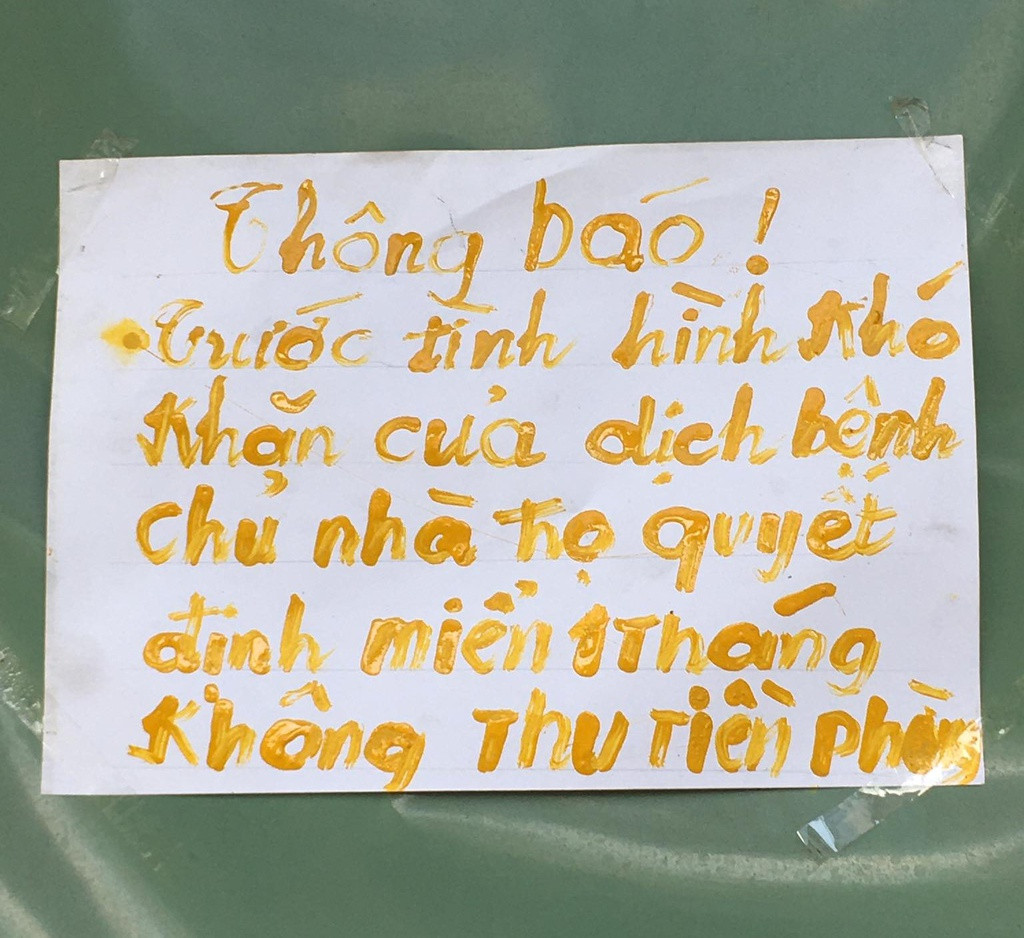 Thông báo !
Trước tình hình khó
khặn của dịch bệnh
chủ nhà Thọ quyết
định miền 1 Tháng
không Thu Tiền phòng